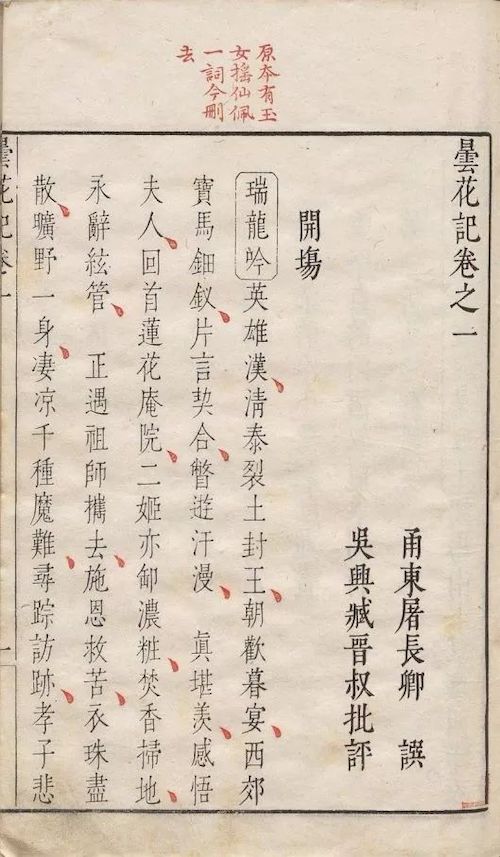 原本有玉
女摇仙佩
一詞今刪
去
曇花記卷之一
甬東屠長卿 譔
吳興臧晉叔批評
開塲
瑞龍吟英雄漢清泰裂土封王朝歡暮宴西郊
寶馬鈿釵片言契合瞥遊汗漫 眞堪羨感悟
夫人回首蓮花庵院二姬亦卸濃粧焚香掃地
永辭絃管 正遇祖師攜去施恩救苦衣珠盡
散曠野一身凄凉千種魔難尋踪訪跡孝子悲
曇花記卷一
一